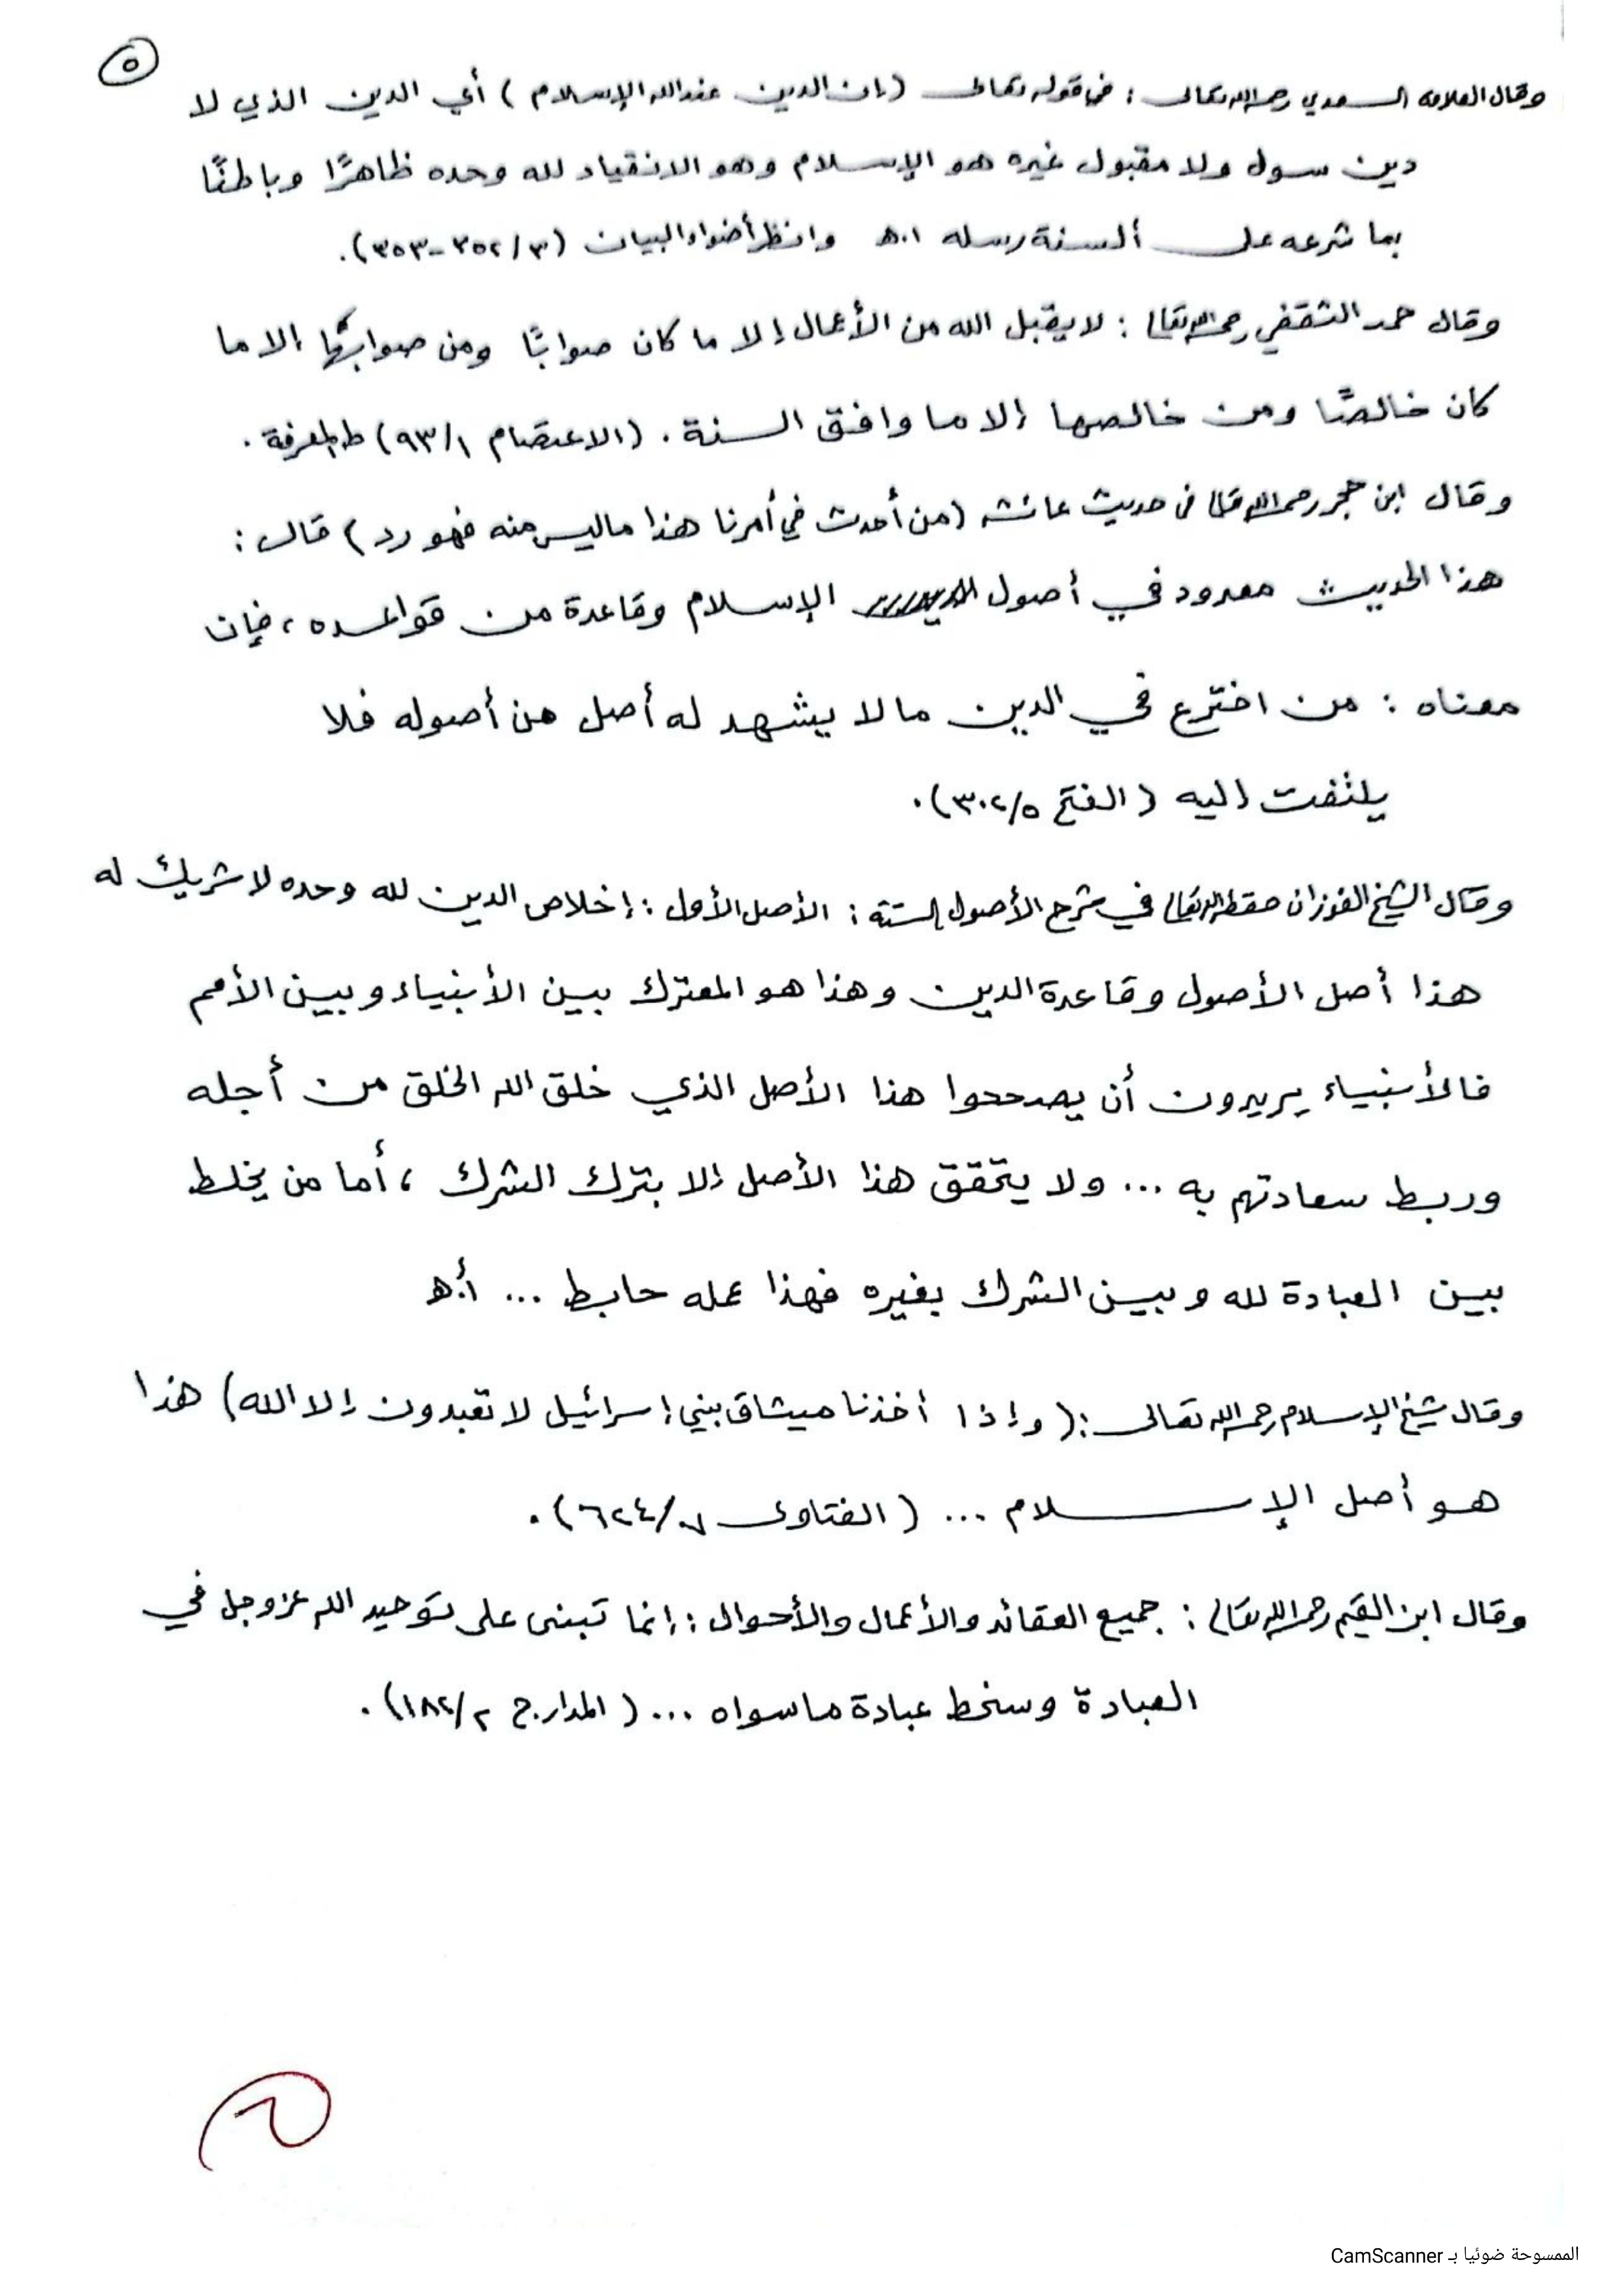 ٥
وقال العلامة السعدي رحمه الله تعالى : في قوله تعالى (إن الدين عند الله الإسلام) أي الدين الذي لا
دين سول ولا مقبول غيره هو الإسلام وهو الانقياد لله وحده ظاهرًا وباطنًا
بما شرعه على ألسنة رسله ا.ه وانظر أضواء البيان (٣/٣٥٢-٣٥٣).
وقال حمد الثقفي رحمه الله تعالى : لا يقبل الله من الأعمال إلا ما كان صوابًا ومن صوابها إلا ما
كان خالصًا ومن خالصها إلا ما وافق السنة . (الاعتصام ٩٣/١) ط المعرفة .
وقال ابن حجر رحمه الله تعالى في حديث عائشه (من أحدث في أمرنا هذا ما ليس منه فهو رد) قال :
هذا الحديث معدود في أصول الإسلام وقاعدة من قواعده ، فإن
معناه : من اخترع في الدين مالا يشهد له أصل من أصوله فلا
يلتفت إليه (الفتح ٣٠٢/٥).
وقال الشيخ الفوزان حفظه الله تعالى في شرح الأصول الستة : الأصل الأول : إخلاص الدين لله وحده لا شريك له
هذا أصل الأصول وقاعدة الدين وهذا هو المعترك بين الأنبياء وبين الأمم
فالأنبياء يريدون أن يصححوا هذا الأصل الذي خلق الله الخلق من أجله
وربط سعادتهم به ... ولا يتحقق هذا الأصل إلا بترك الشرك ، أما من يخلط
بين العبادة لله وبين الشرك بغيره فهذا عمله حابط ... أ.ه
وقال شيخ الإسلام رحمه الله تعالى : (وإذا أخذنا ميثاق بني إسرائيل لا تعبدون إلا الله) هذا
هو أصل الإسلام ... (الفتاوى ٦٢٤/٧).
وقال ابن القيم رحمه الله تعالى : جميع العقائد والأعمال والأحوال : إنما تبنى على توحيد الله عز وجل في
العبادة وسخط عبادة ما سواه ... (المدارج ١٨٢/٢).
الممسوحة ضوئيا بـ CamScanner